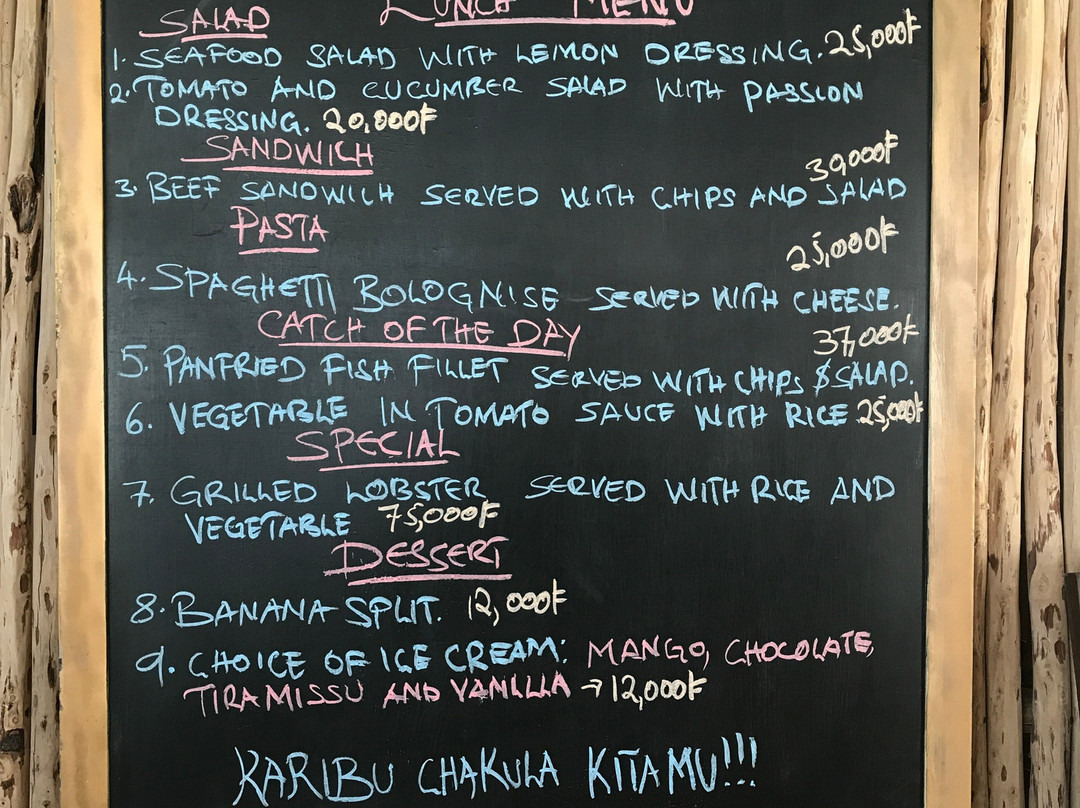 LUNCH MENU
SALAD
1. SEAFOOD SALAD WITH LEMON DRESSING. 25,000/=
2. TOMATO AND CUCUMBER SALAD WITH PASSION
DRESSING. 20,000/=
SANDWICH
30,000/=
3. BEEF SANDWICH SERVED WITH CHIPS AND SALAD
PASTA
25,000/=
4. SPAGHETTI BOLOGNISE SERVED WITH CHEESE.
CATCH OF THE DAY
37,000/=
5. PANFRIED FISH FILLET SERVED WITH CHIPS & SALAD.
6. VEGETABLE IN TOMATO SAUCE WITH RICE 25,000/=
SPECIAL
7. GRILLED LOBSTER SERVED WITH RICE AND
VEGETABLE 75,000/=
DESSERT
8. BANANA SPLIT. 12,000/=
9. CHOICE OF ICE CREAM: MANGO, CHOCOLATE,
TIRAMISSU AND VANILLA → 12,000/=
KARIBU CHAKULA KITAMU!!!